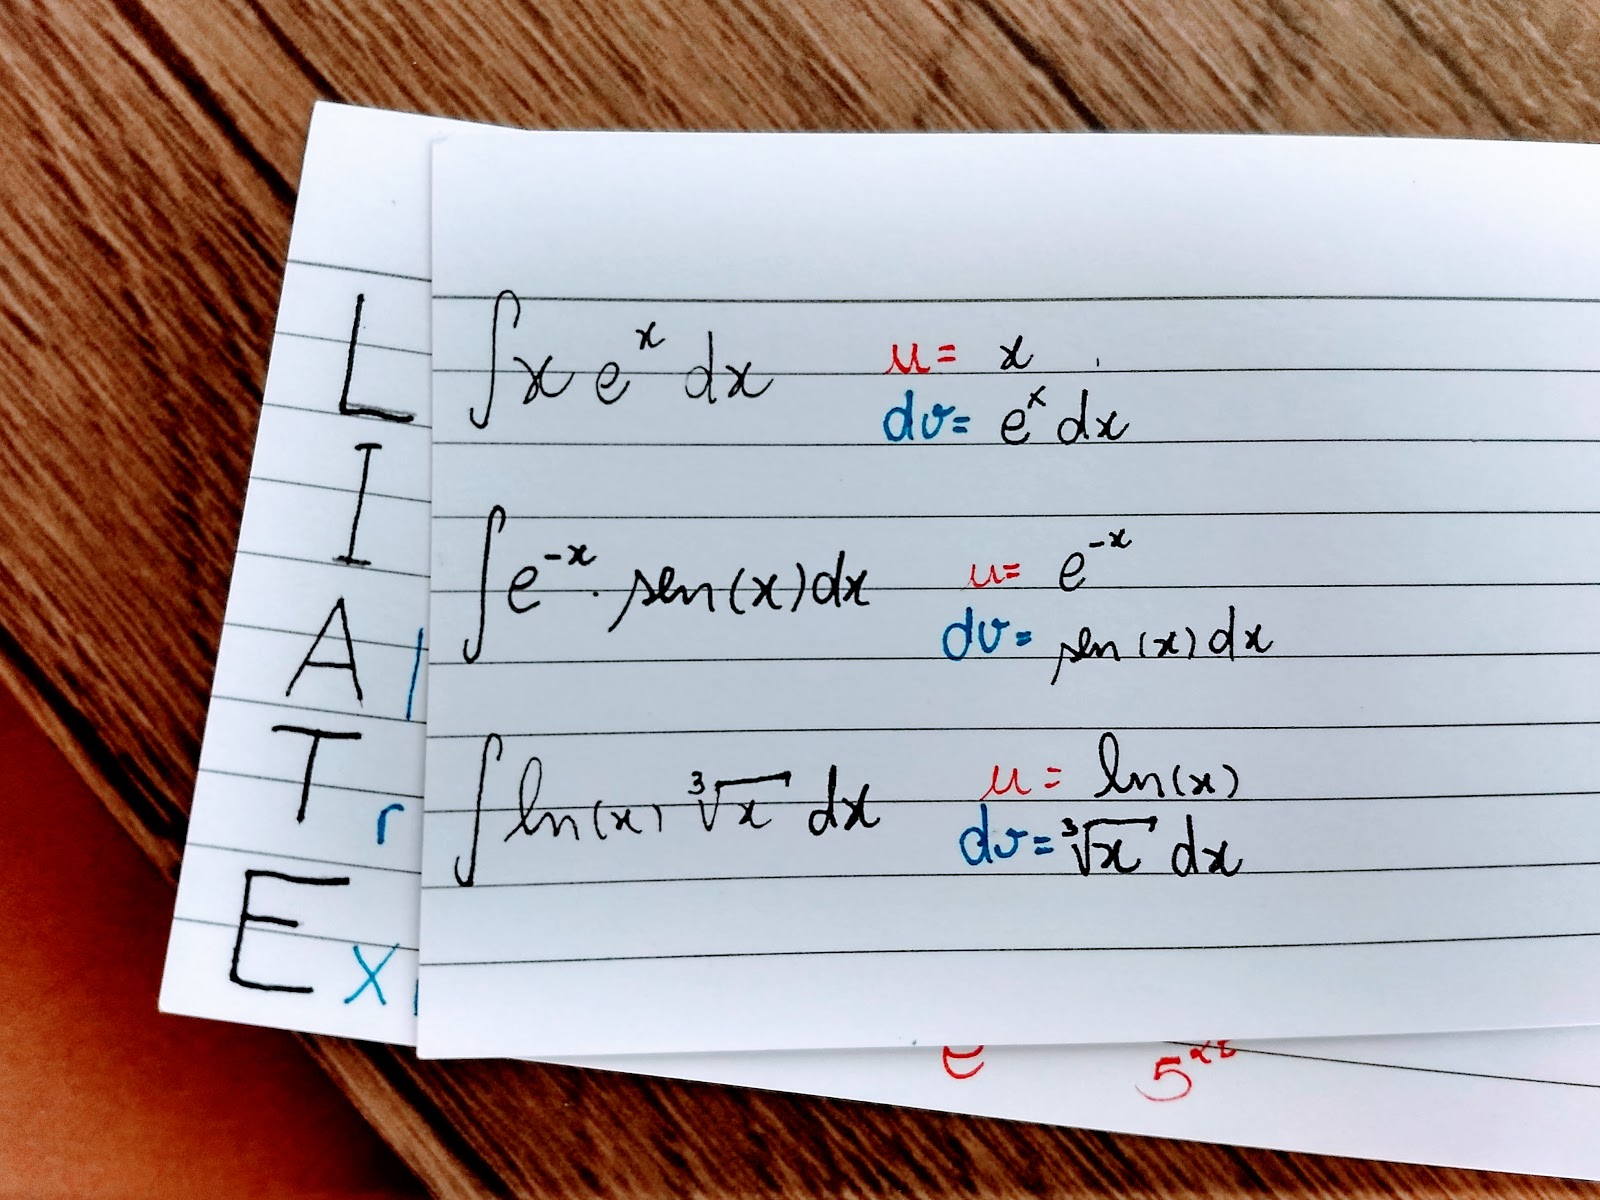 L
I
A
T r
E x
∫ x eˣ dx u = x
dv = eˣ dx
∫ e⁻ˣ · sen(x) dx u = e⁻ˣ
dv = sen(x) dx
∫ ln(x) ³√x dx u = ln(x)
dv = ³√x dx
e 5